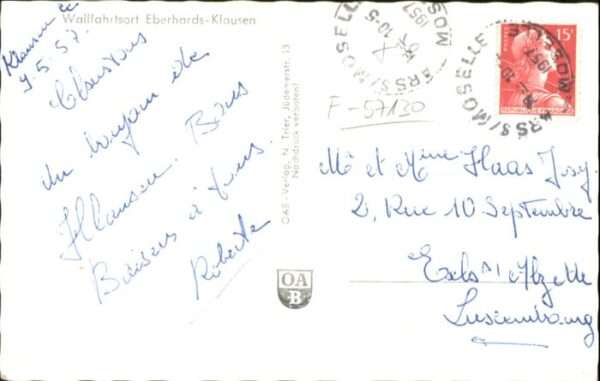 Wallfahrtsort Eberhards-Klausen
Klausen le
9.5.57.
du voyage de
Klausen. Bons
Baisers à tous.
Roberte
OAB-Verlag, N. Trier, Jüdemerstr. 13
Nachdruck verboten!
OA
B
F-57130
ARS S/MOSELLE
10-5
1957
MOSELLE
15F
ARS S/MOSELLE
10-5
1957
MOSELLE
Mr et Mme Haas Josy
2, Rue 10 Septembre
Esch s/ Alzette
Luxembourg